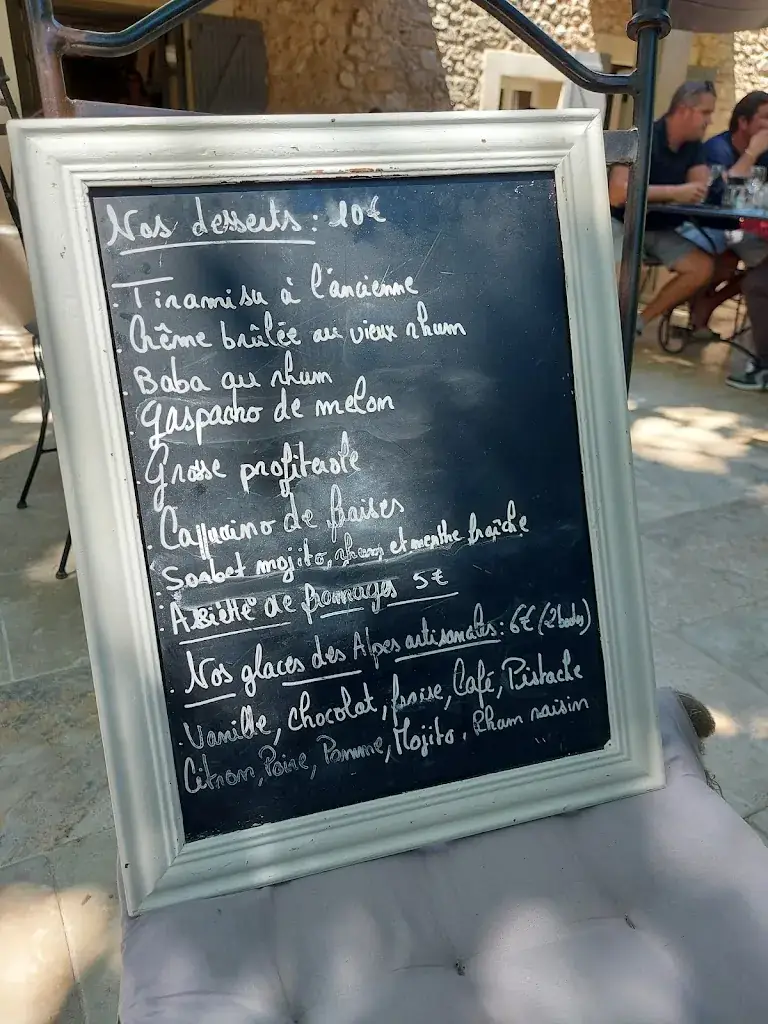 Nos desserts : 10€
. Tiramisu à l'ancienne
. Crême brûlée au vieux rhum
. Baba au rhum
. gaspacho de melon
. Grosse profiterole
. Cappucino de fraises
. Sorbet mojito, rhum et menthe fraîche
. Assiette de fromages 5€
. Nos glaces des Alpes artisanales : 6€ (2 boules)
. Vanille, chocolat, fraise, Café, Pistache
Citron, Poire, Pomme, Mojito, Rham raisin